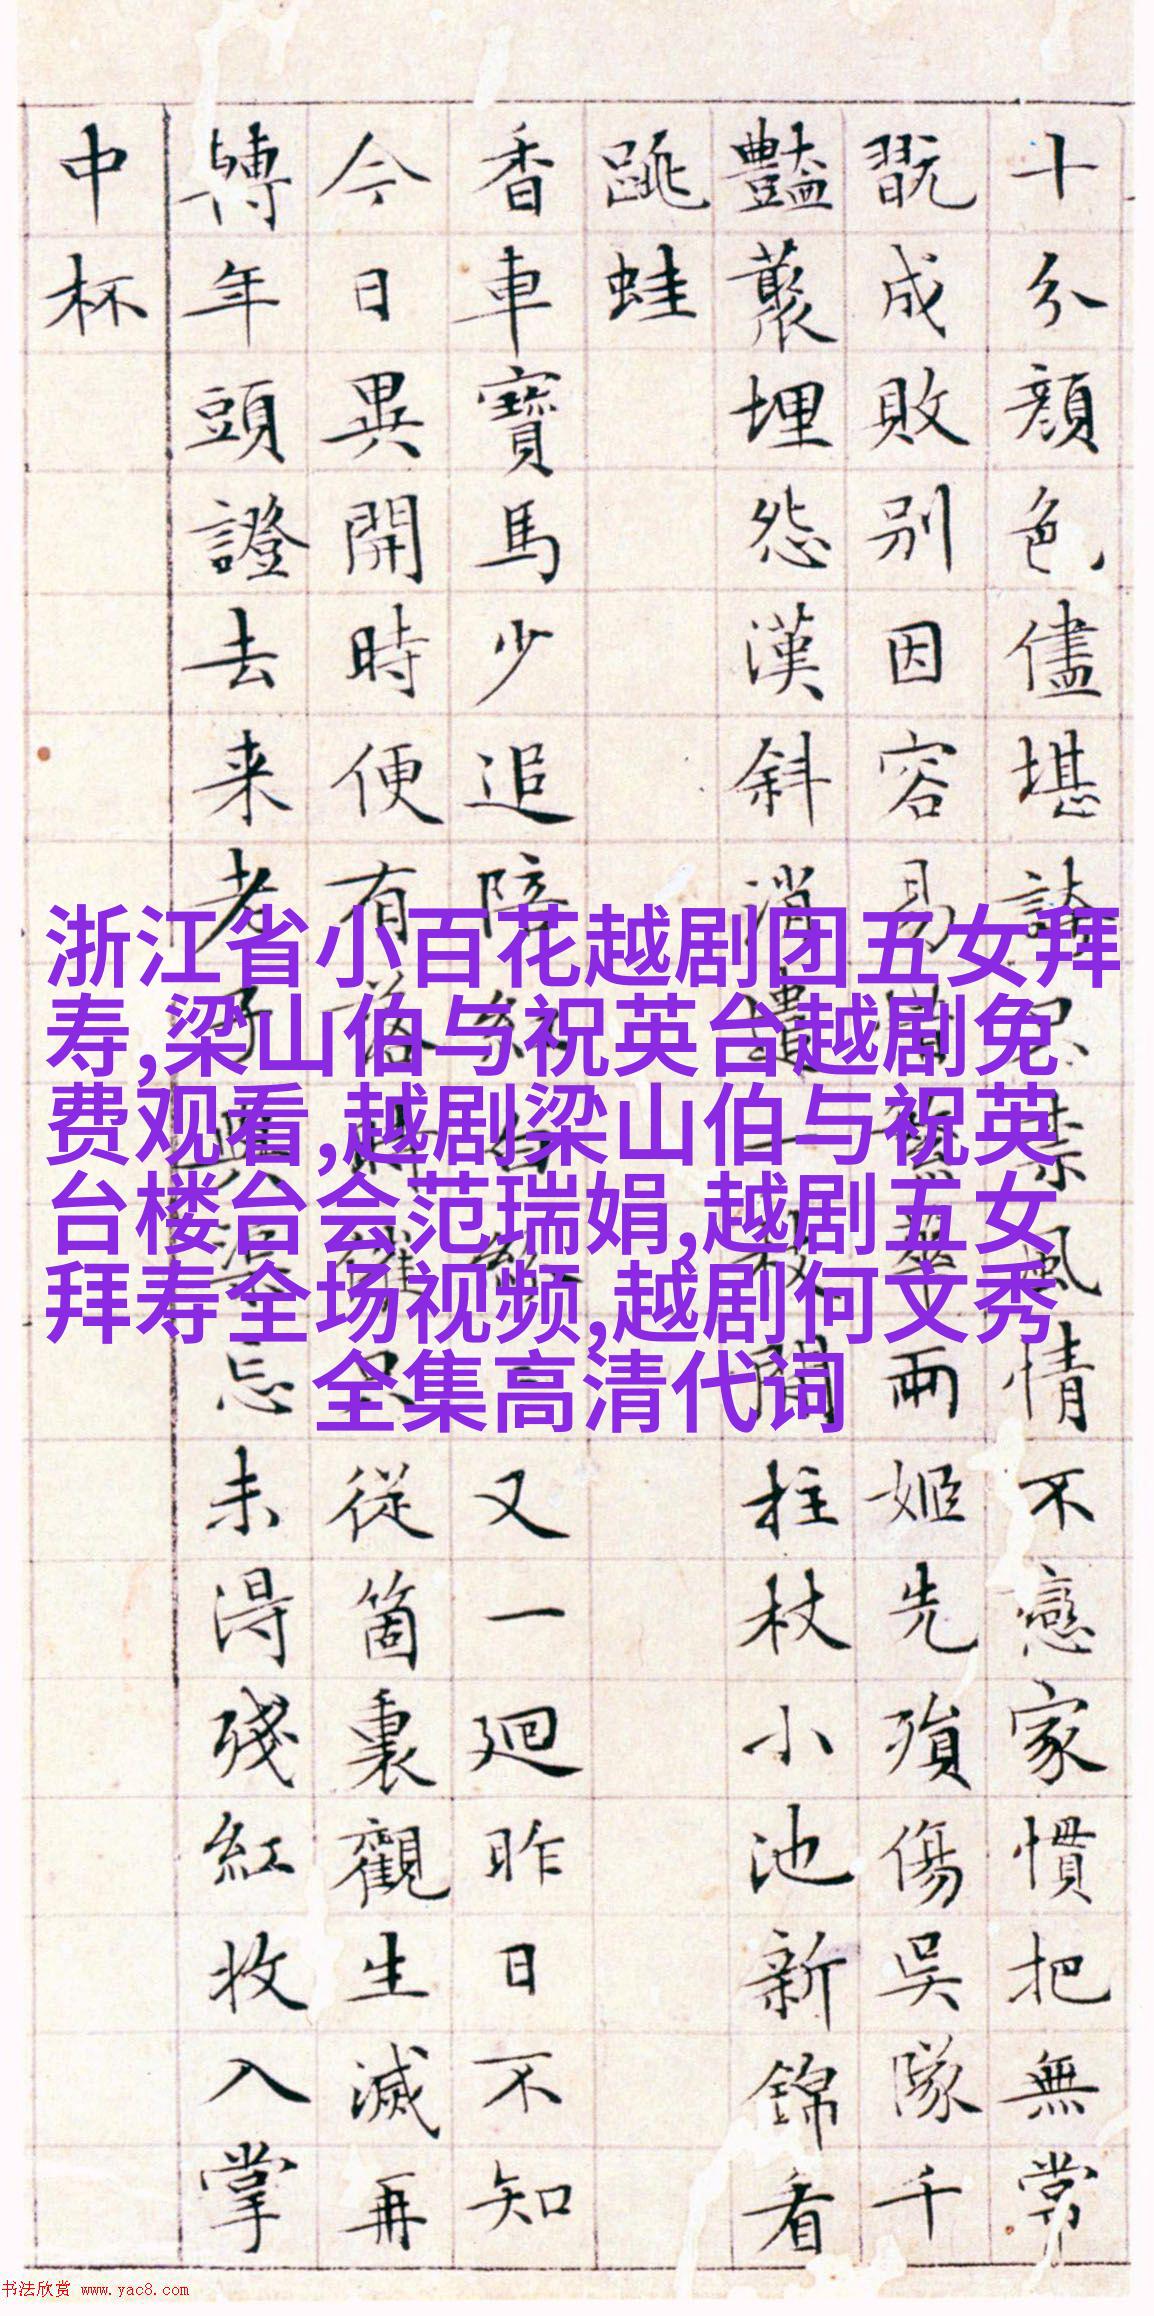 十分顔色儘堪風情不戀家慣把無常
翫成敗別因容易兩姬先殞傷吳隊千
豔叢埋怨漢斜消遣一般閒柱杖小池新錦看
跳蛙
香車寶馬少追陪紅又一迴昨日不知
今日異開時便有落從箇裏觀生滅再
轉年頭證去来老子與渠忘未得殘紅收入掌
中杯
浙江省小百花越剧团五女拜
寿,梁山伯与祝英台越剧免
费观看,越剧梁山伯与祝英
台楼台会范瑞娟,越剧五女
拜寿全场视频,越剧何文秀
全集高清代词
书法欣赏 www.yac8.com